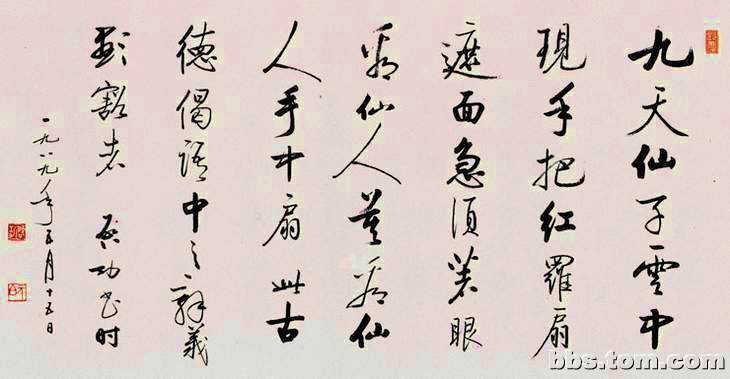 九天仙子雲中
現手把紅羅扇
遮面急須著眼
看仙人莫看仙
人手中扇 此古
德偈語中之辭義
彰豁者 启功书时
一九八九年五月十五日
bbs.tom.com